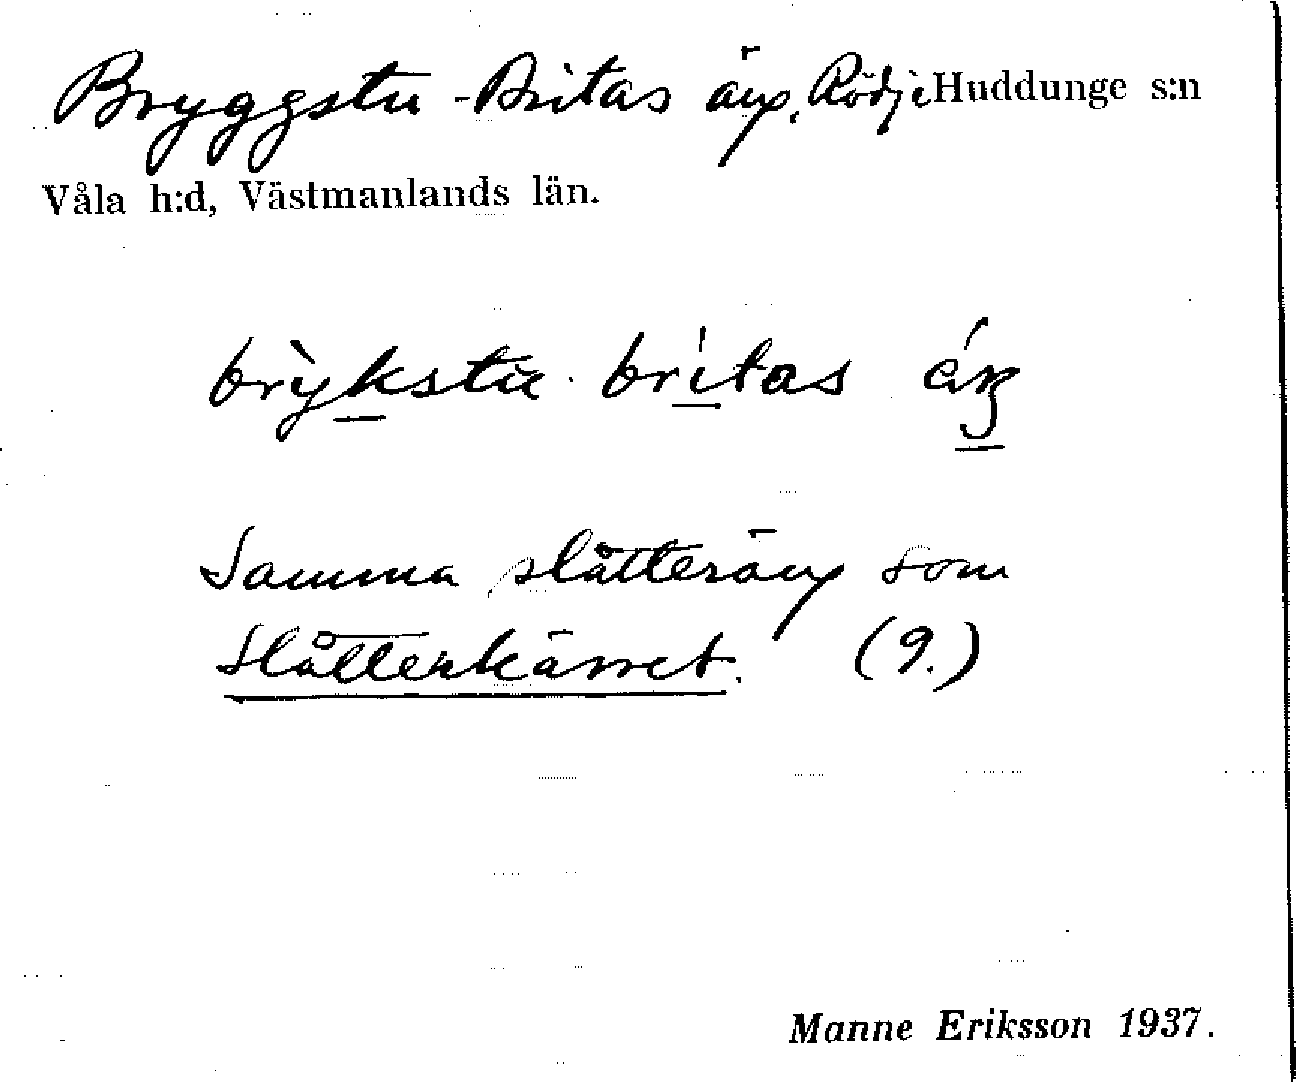 Bryggstu-Britas äng, Rödje Huddunge s:n
Våla h:d, Västmanlands län.
brỳkstu britas
Samma slåtteräng som
Slåtterkärret. (9.)
Manne Eriksson 1937.